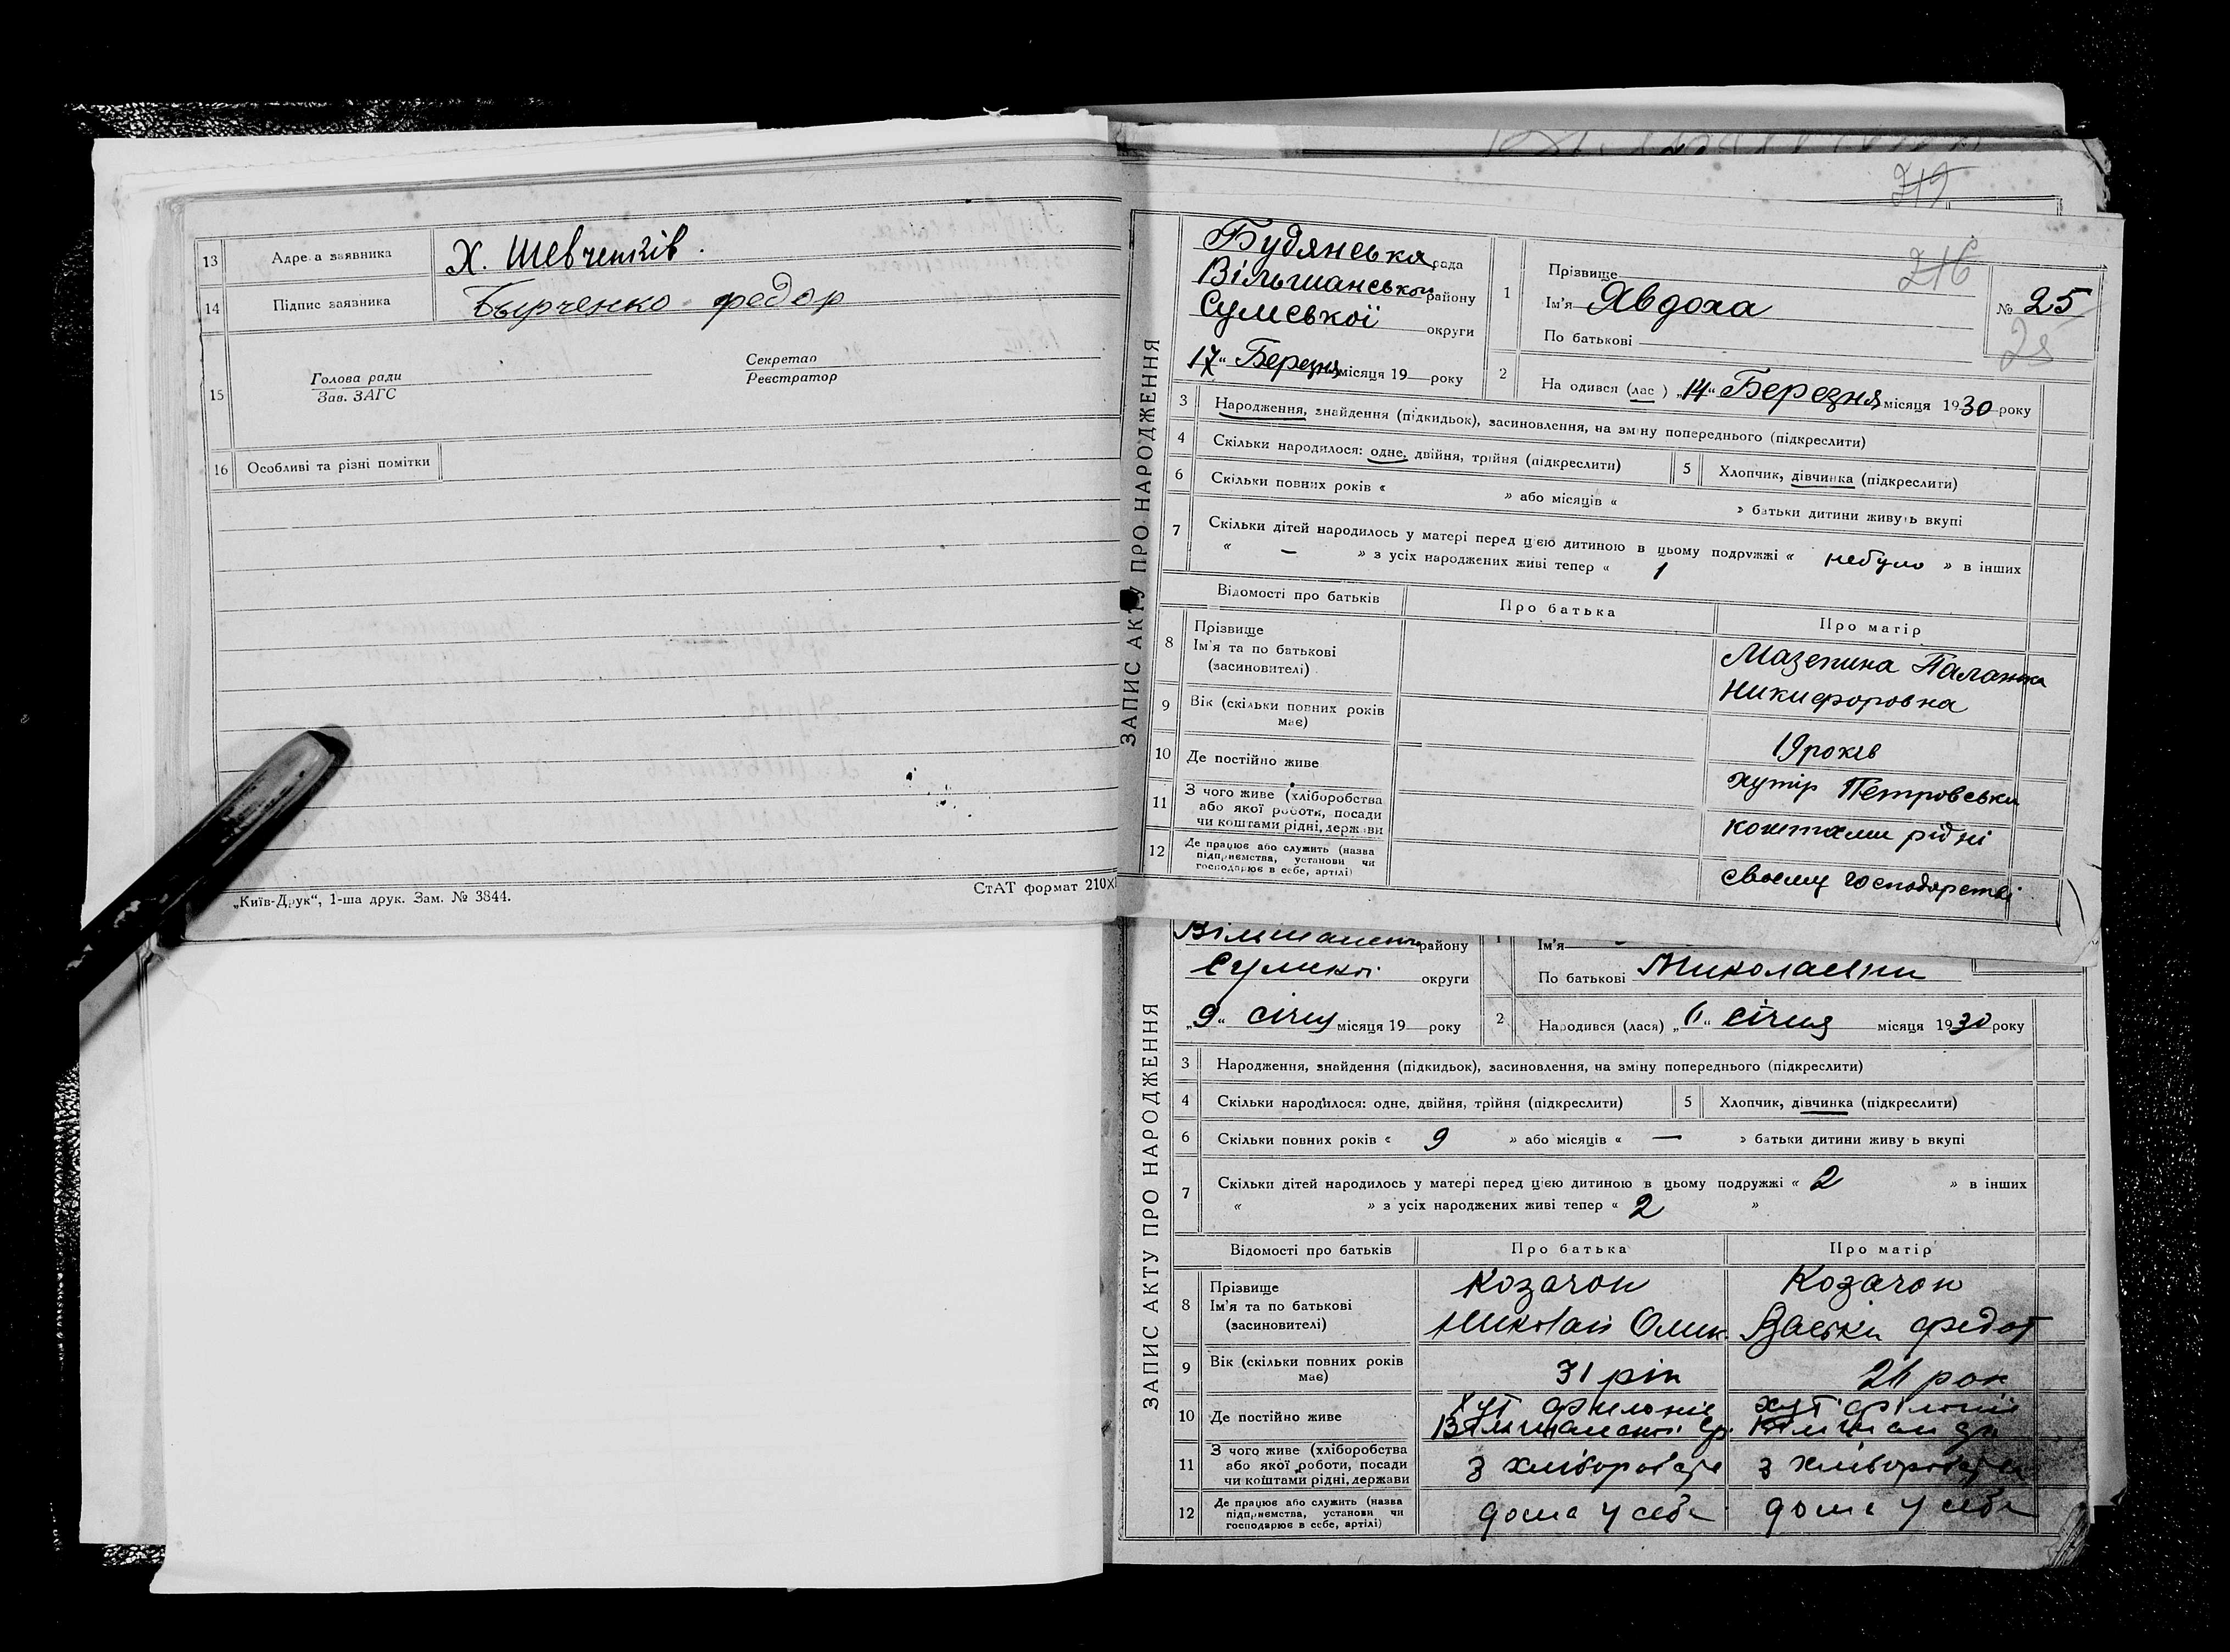 13 Адреса заявника Х. Шевченків.
14 Підпис заявника Бырченко федор
15 Голова ради
Зав. ЗАГС
Секретар
Реєстратор
16 Особливі та різні помітки
„Київ-Друк“, 1-ша друк. Зам. № 3844.
СтАТ формат 210х
719
716
ЗАПИС АКТУ ПРО НАРОДЖЕННЯ
Будянська рада
Вільшанського району
Сумської округи
„17“ Березня місяця 19 року
1 Прізвище
Ім'я Явдоха
По батькові
№ 25
25
2 На одився (лас ) „14“ Березня місяця 1930 року
3 Народження, знайдення (підкидьок), засиновлення, на зміну попереднього (підкреслити)
4 Скільки народилося: одне, двійня, трійня (підкреслити)
5 Хлопчик, дівчинка (підкреслити)
6 Скільки повних років « » або місяців « » батьки дитини живуь вкупі
7 Скільки дітей народилось у матері перед цією дитиною в цьому подружжі « небуло » в інших
« — » з усіх народжених живі тепер « 1
Відомості про батьків
Про батька
Про матір
8 Прізвище
Ім'я та по батькові
(засиновителі)
Мазепина Палажка
Никифоровна
9 Вік (скільки повних років має)
19 років
10 Де постійно живе
хутір Петровськи
11 З чого живе (хліборобства
або якої роботи, посади
чи коштами рідні, держави
коштами рідні
12 Де працює або служить (назва
підприємства, установи чи
господарює в себе, артілі)
своєму господарстві
ЗАПИС АКТУ ПРО НАРОДЖЕННЯ
району
округи
„9“ січня місяця 19 року
1 Ім'я
По батькові Миколаевни
2 Народився (лася) „6“ січня місяця 1930 року
3 Народження, знайдення (підкидьок), засиновлення, на зміну попереднього (підкреслити)
4 Скільки народилося: одне, двійня, трійня (підкреслити)
5 Хлопчик, дівчинка (підкреслити)
6 Скільки повних років « 9 » або місяців « — » батьки дитини живу ь вкупі
7 Скільки дітей народилось у матері перед цією дитиною в цьому подружжі « 2 » в інших
« » з усіх народжених живі тепер « 2 »
Відомості про батьків
Про батька
Про матір
8 Прізвище
Ім'я та по батькові
(засиновителі)
Козачок
Николай Омик.
Козачок
федот
9 Вік (скільки повних років має)
31 рік
26 рок
10 Де постійно живе
хут
хут
11 З чого живе (хліборобства
або якої роботи, посади
чи коштами рідні, держави
з хліборобств
з хліборобства
12 Де працює або служить (назва
підприємства, установи чи
господарює в себе, артілі)
дома у себе
дома у себе